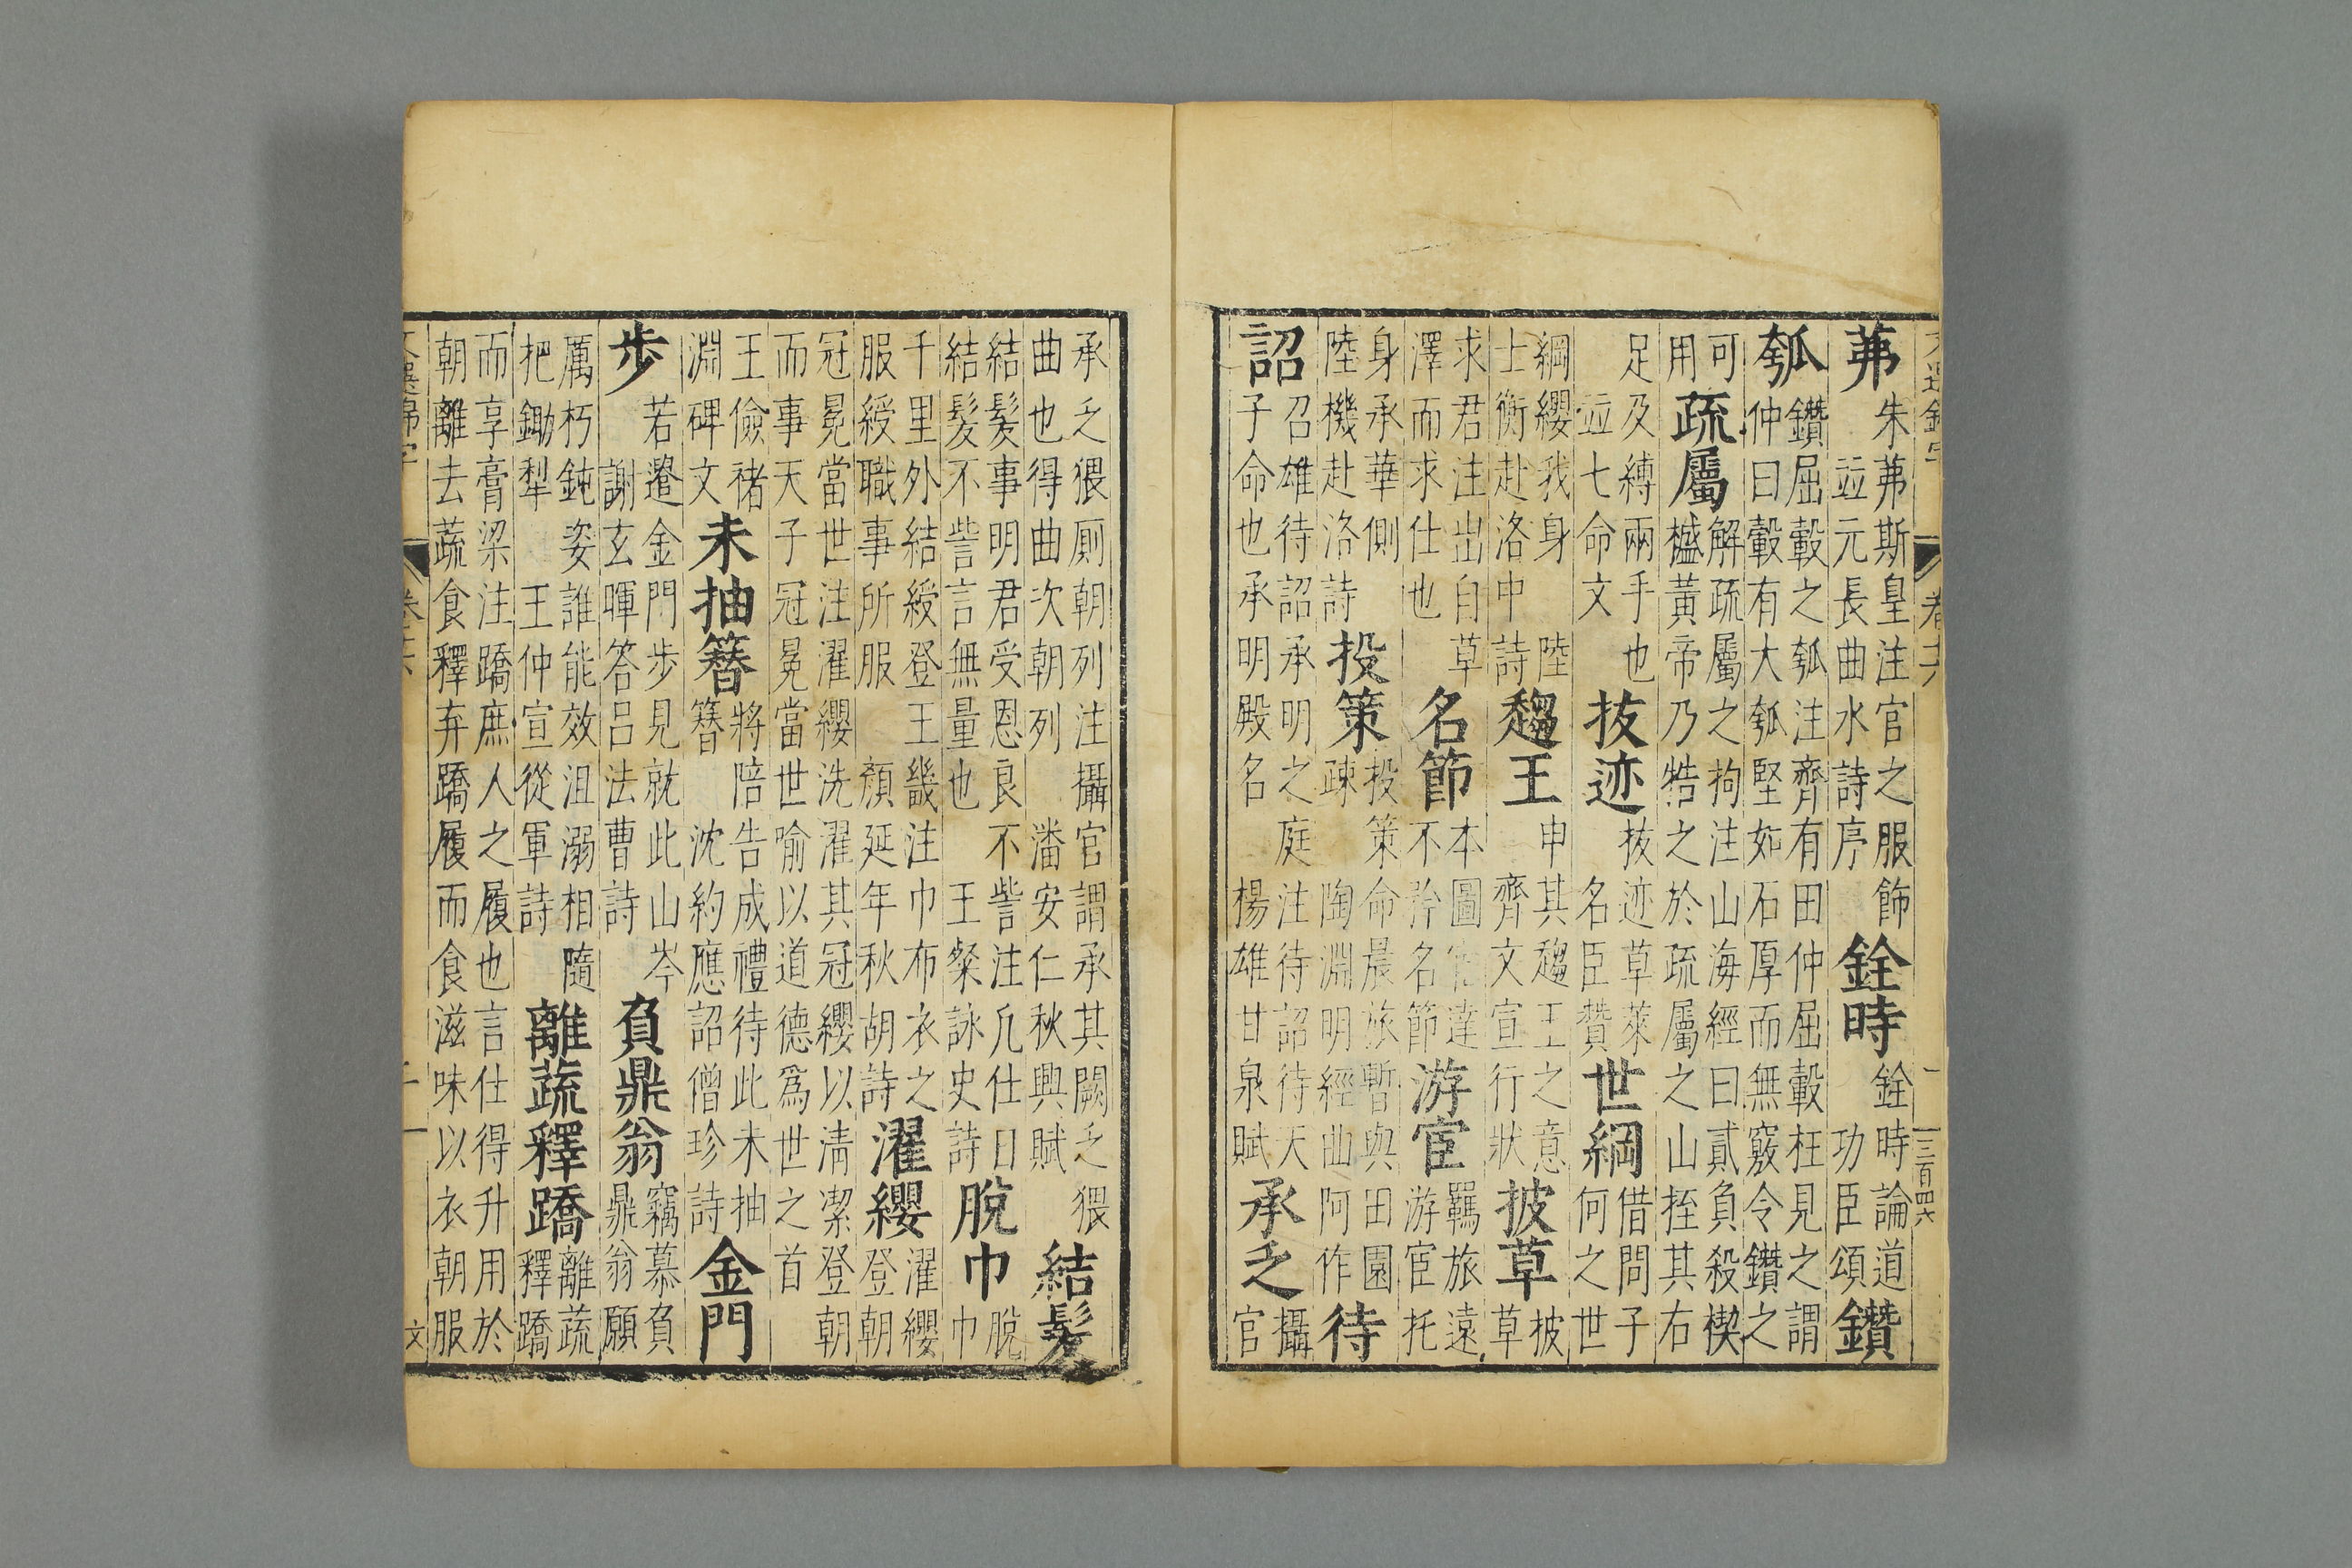 茀朱茀斯皇注官之服飾
竝元長曲水詩序銓時銓時論道
功臣頌鑽
瓠鑽屈轂之瓠注齊有田仲屈轂枉見之謂
仲曰轂有大瓠堅如石厚而無竅令鑽之
可
用疏屬解疏屬之拘注山海經曰貳負殺楔
㰂黃帝乃牿之於疏屬之山挃其右
足及縛兩手也
竝七命文抜迹抜迹草萊
名臣贊世綱借問子
何之世
綱纓我身陸
士衡赴洛中詩趨王申其趨王之意
齊文宣行狀披草披
草
求君注出自草
澤而求仕也名節本圖宦達
不矜名節游宦羈旅遠
游宦托
身承華側
陸機赴洛詩投策投策命晨旅暫與田園
疎陶淵明經曲阿作待
詔召雄待詔承明之庭注待詔待天
子命也承明殿名楊雄甘泉賦承乏攝
官
承乏猥厠朝列注攝官謂承其闕乏猥
曲也得曲次朝列潘安仁秋興賦結髮
結髮事明君受恩良不訾注凡仕曰
結髮不訾言無量也王粲詠史詩脫巾脫
巾
千里外結綬登王畿注巾布衣之
服綬職事所服顏延年秋胡詩濯纓濯纓
登朝
冠冕當世注濯纓洗濯其冠纓以淸潔登朝
而事天子冠冕當世喻以道德爲世之首
王儉禇
淵碑文未抽簪將陪告成禮待此未抽
簪沈約應詔僧珍詩金門
步若遷金門步見就此山岑
謝玄暉答呂法曹詩負鼎翁竊慕負
鼎翁願
厲朽鈍姿誰能效沮溺相隨
把鋤犁王仲宣從軍詩離蔬釋蹻離蔬
釋蹻
而享膏梁注蹻庶人之履也言仕得升用於
朝離去蔬食釋弃蹻履而食滋味以衣朝服